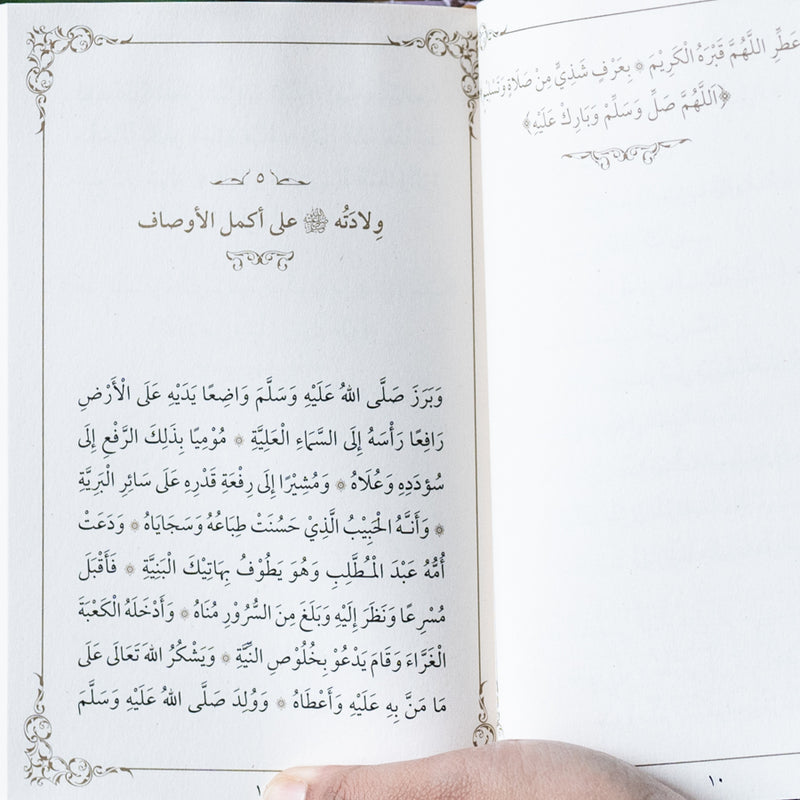 عَطِّرِ اللَّهُمَّ قَبْرَهُ الْكَرِيْمَ ۞ بِعَرْفٍ شَذِيٍّ مِنْ صَلَاةٍ وَتَسْلِيْمٍ
﴿اَللَّهُمَّ صَلِّ وَسَلِّمْ وَبَارِكْ عَلَيْهِ﴾
١٠
٥
وِلادَتُه ﷺ على أكمل الأوصاف
وَبَرَزَ صَلَّى اللهُ عَلَيْهِ وَسَلَّمَ وَاضِعًا يَدَيْهِ عَلَى الْأَرْضِ
رَافِعًا رَأْسَهُ إِلَى السَّمَاءِ الْعَلِيَّةِ ۞ مُوْمِيًا بِذَلِكَ الرَّفْعِ إِلَى
سُؤدَدِهِ وَعُلَاهُ ۞ وَمُشِيْرًا إِلَى رِفْعَةِ قَدْرِهِ عَلَى سَائِرِ الْبَرِيَّةِ
۞ وَأَنَّهُ الْحَبِيْبُ الَّذِيْ حَسُنَتْ طِبَاعُهُ وَسَجَايَاهُ ۞ وَدَعَتْ
أُمُّهُ عَبْدَ الْمُطَّلِبِ وَهُوَ يَطُوْفُ بِهَاتِيْكَ الْبَنِيَّةِ ۞ فَأَقْبَلَ
مُسْرِعًا وَنَظَرَ إِلَيْهِ وَبَلَغَ مِنَ السُّرُوْرِ مُنَاهُ ۞ وَأَدْخَلَهُ الْكَعْبَةَ
الْغَرَّاءَ وَقَامَ يَدْعُوْ بِخُلُوْصِ النِّيَّةِ ۞ وَيَشْكُرُ اللهَ تَعَالَى عَلَى
مَا مَنَّ بِهِ عَلَيْهِ وَأَعْطَاهُ ۞ وَوُلِدَ صَلَّى اللهُ عَلَيْهِ وَسَلَّمَ